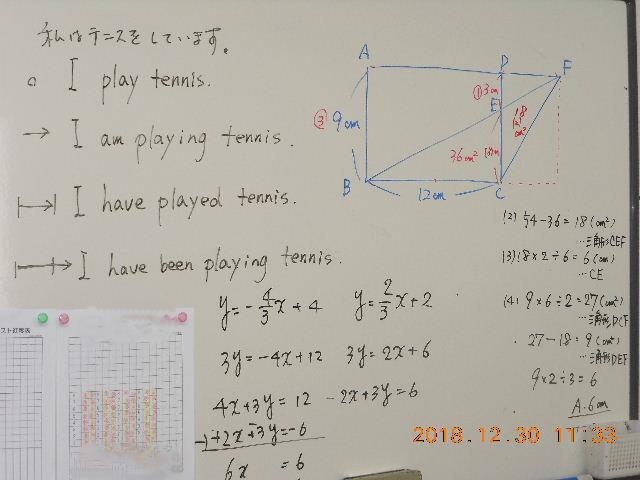 私はテニスをしています。
I play tennis.
→ I am playing tennis.
I have played tennis.
I have been playing tennis.
A
D
F
① 3cm
E
③ 9cm
18
cm²
36cm²
B
12cm
C
(2) 54-36=18(cm²)
…三角形CEF
(3) 18×2÷6=6(cm)
…CE
(4) 9×6÷2=27(cm²)
…三角形DCF
27-18=9(cm²)
…三角形DEF
9×2÷3=6
A. 6cm
y=-4/3x+4 y=2/3x+2
3y=-4x+12 3y=2x+6
4x+3y=12 -2x+3y=6
6x =6
2018.12.30 11:33